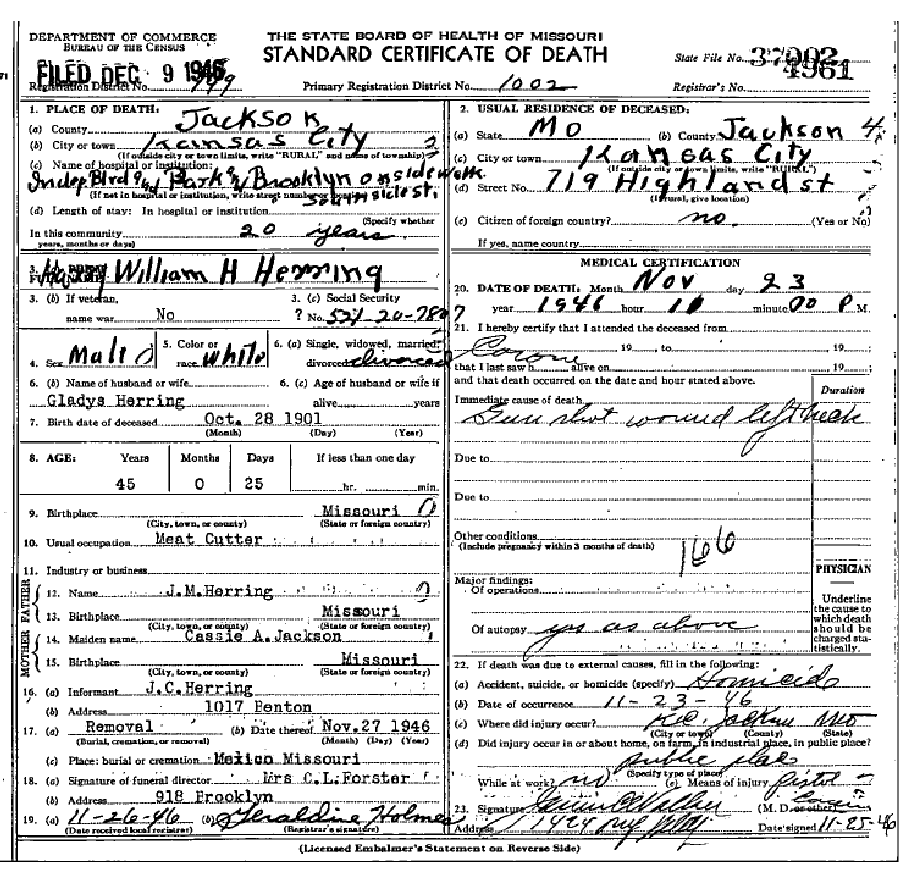 DEPARTMENT OF COMMERCE
BUREAU OF THE CENSUS
THE STATE BOARD OF HEALTH OF MISSOURI
STANDARD CERTIFICATE OF DEATH
State File No. 37002
4961
FILED DEC 9 1946
Registration District No. 799
Primary Registration District No. 1002
Registrar's No.
1. PLACE OF DEATH:
(a) County Jackson
(b) City or town Kansas City
(If outside city or town limits, write "RURAL" and name of township)
(c) Name of hospital or institution:
Indep Blvd Park Brooklyn on sidewalk
south side st.
(If not in hospital or institution, write street number or location)
(d) Length of stay: In hospital or institution
(Specify whether
In this community 20 years
years, months or days)
2. USUAL RESIDENCE OF DECEASED:
(a) State Mo (b) County Jackson
(c) City or town Kansas City
(If outside city or town limits, write "RURAL")
(d) Street No. 719 Highland st
(If rural, give location)
(e) Citizen of foreign country? no (Yes or No)
If yes, name country
3. William H Herring
3. (b) If veteran,
name war No
3. (c) Social Security
No.
4. Sex Male
5. Color or
race White
6. (a) Single, widowed, married,
divorced divorced
6. (b) Name of husband or wife
Gladys Herring
6. (c) Age of husband or wife if
alive years
7. Birth date of deceased Oct. 28 1901
(Month) (Day) (Year)
8. AGE: Years Months Days If less than one day
45 0 25 hr. min.
9. Birthplace Missouri
(City, town, or county) (State or foreign country)
10. Usual occupation Meat Cutter
11. Industry or business
FATHER
12. Name J.M.Herring
13. Birthplace Missouri
(City, town, or county) (State or foreign country)
MOTHER
14. Maiden name Cassie A.Jackson
15. Birthplace Missouri
(City, town, or county) (State or foreign country)
16. (a) Informant J.C.Herring
(b) Address 1017 Benton
17. (a) Removal (b) Date thereof Nov.27 1946
(Burial, cremation, or removal) (Month) (Day) (Year)
(c) Place: burial or cremation Mexico Missouri
18. (a) Signature of funeral director Mrs C.L.Forster
(b) Address 918 Brooklyn
19. (a) 11-26-46 (b) Geraldine Holmes
(Date received local registrar) (Registrar's signature)
MEDICAL CERTIFICATION
20. DATE OF DEATH: Month Nov day 23
year 1946 hour 11 minute 00 P M.
21. I hereby certify that I attended the deceased from
Corone 19 , to 19 ;
that I last saw h alive on 19 ;
and that death occurred on the date and hour stated above.
Duration
Immediate cause of death
Gun shot wound left neck
Due to
Due to
Other conditions
(Include pregnancy within 3 months of death)
166
Major findings:
Of operations
Of autopsy yes as above
PHYSICIAN
Underline
the cause to
which death
should be
charged sta-
tistically.
22. If death was due to external causes, fill in the following:
(a) Accident, suicide, or homicide (specify) Homicide
(b) Date of occurrence 11-23-46
(c) Where did injury occur? K.C. Jackson Mo
(City or town) (County) (State)
(d) Did injury occur in or about home, on farm, in industrial place, in public place?
public place
(Specify type of place)
While at work? no (e) Means of injury Pistol
23. Signature (M. D. or other)
Address 1424 Date signed 11-25-46
(Licensed Embalmer's Statement on Reverse Side)